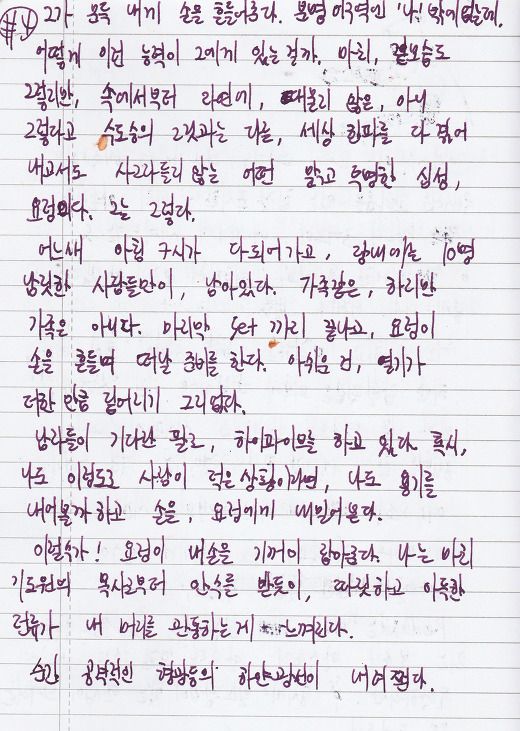 #4
그가 문득 내게 손을 흔들어준다. 분명 이 구역엔 '나' 밖에 없는데.
어떻게 이런 능력이 그에게 있는걸까. 마치, 겉모습도
그렇지만, 속에서부터 자연에, 때묻지 않은, 아니
그렇다고 수도승의 그것과는 다른, 세상 한파를 다 겪어
내고서도 사그라들지 않는 어떤 맑고 투명한 심성,
요렁이다. 그는 그렇다.
어느새 아침 9시가 다되어가고, 장내에는 10명
남짓한 사람들만이, 남아있다. 가족같은, 하지만
가족은 아니다. 마지막 set 까지 끝나고, 요렁이
손을 흔들며 떠날 준비를 한다. 아쉬운 건, 열기가
더한 만큼 덜어지기 그지없다.
남자들이 기다란 팔로, 하이파이브를 하고 있다. 혹시,
나도 이정도로 사람이 적은 상황이라면, 나도 용기를
내어볼까하고 손을, 요렁에게 내밀어본다.
이럴수가! 요렁이 내손을 기꺼이 잡아준다. 나는 마치
기도원의 목사로부터 안수를 받듯이, 따뜻하고 아득한
전류가 내 머리를 관통하는게 느껴진다.
순간 공격적인 형광등의 하얀광선이 내려쬔다.